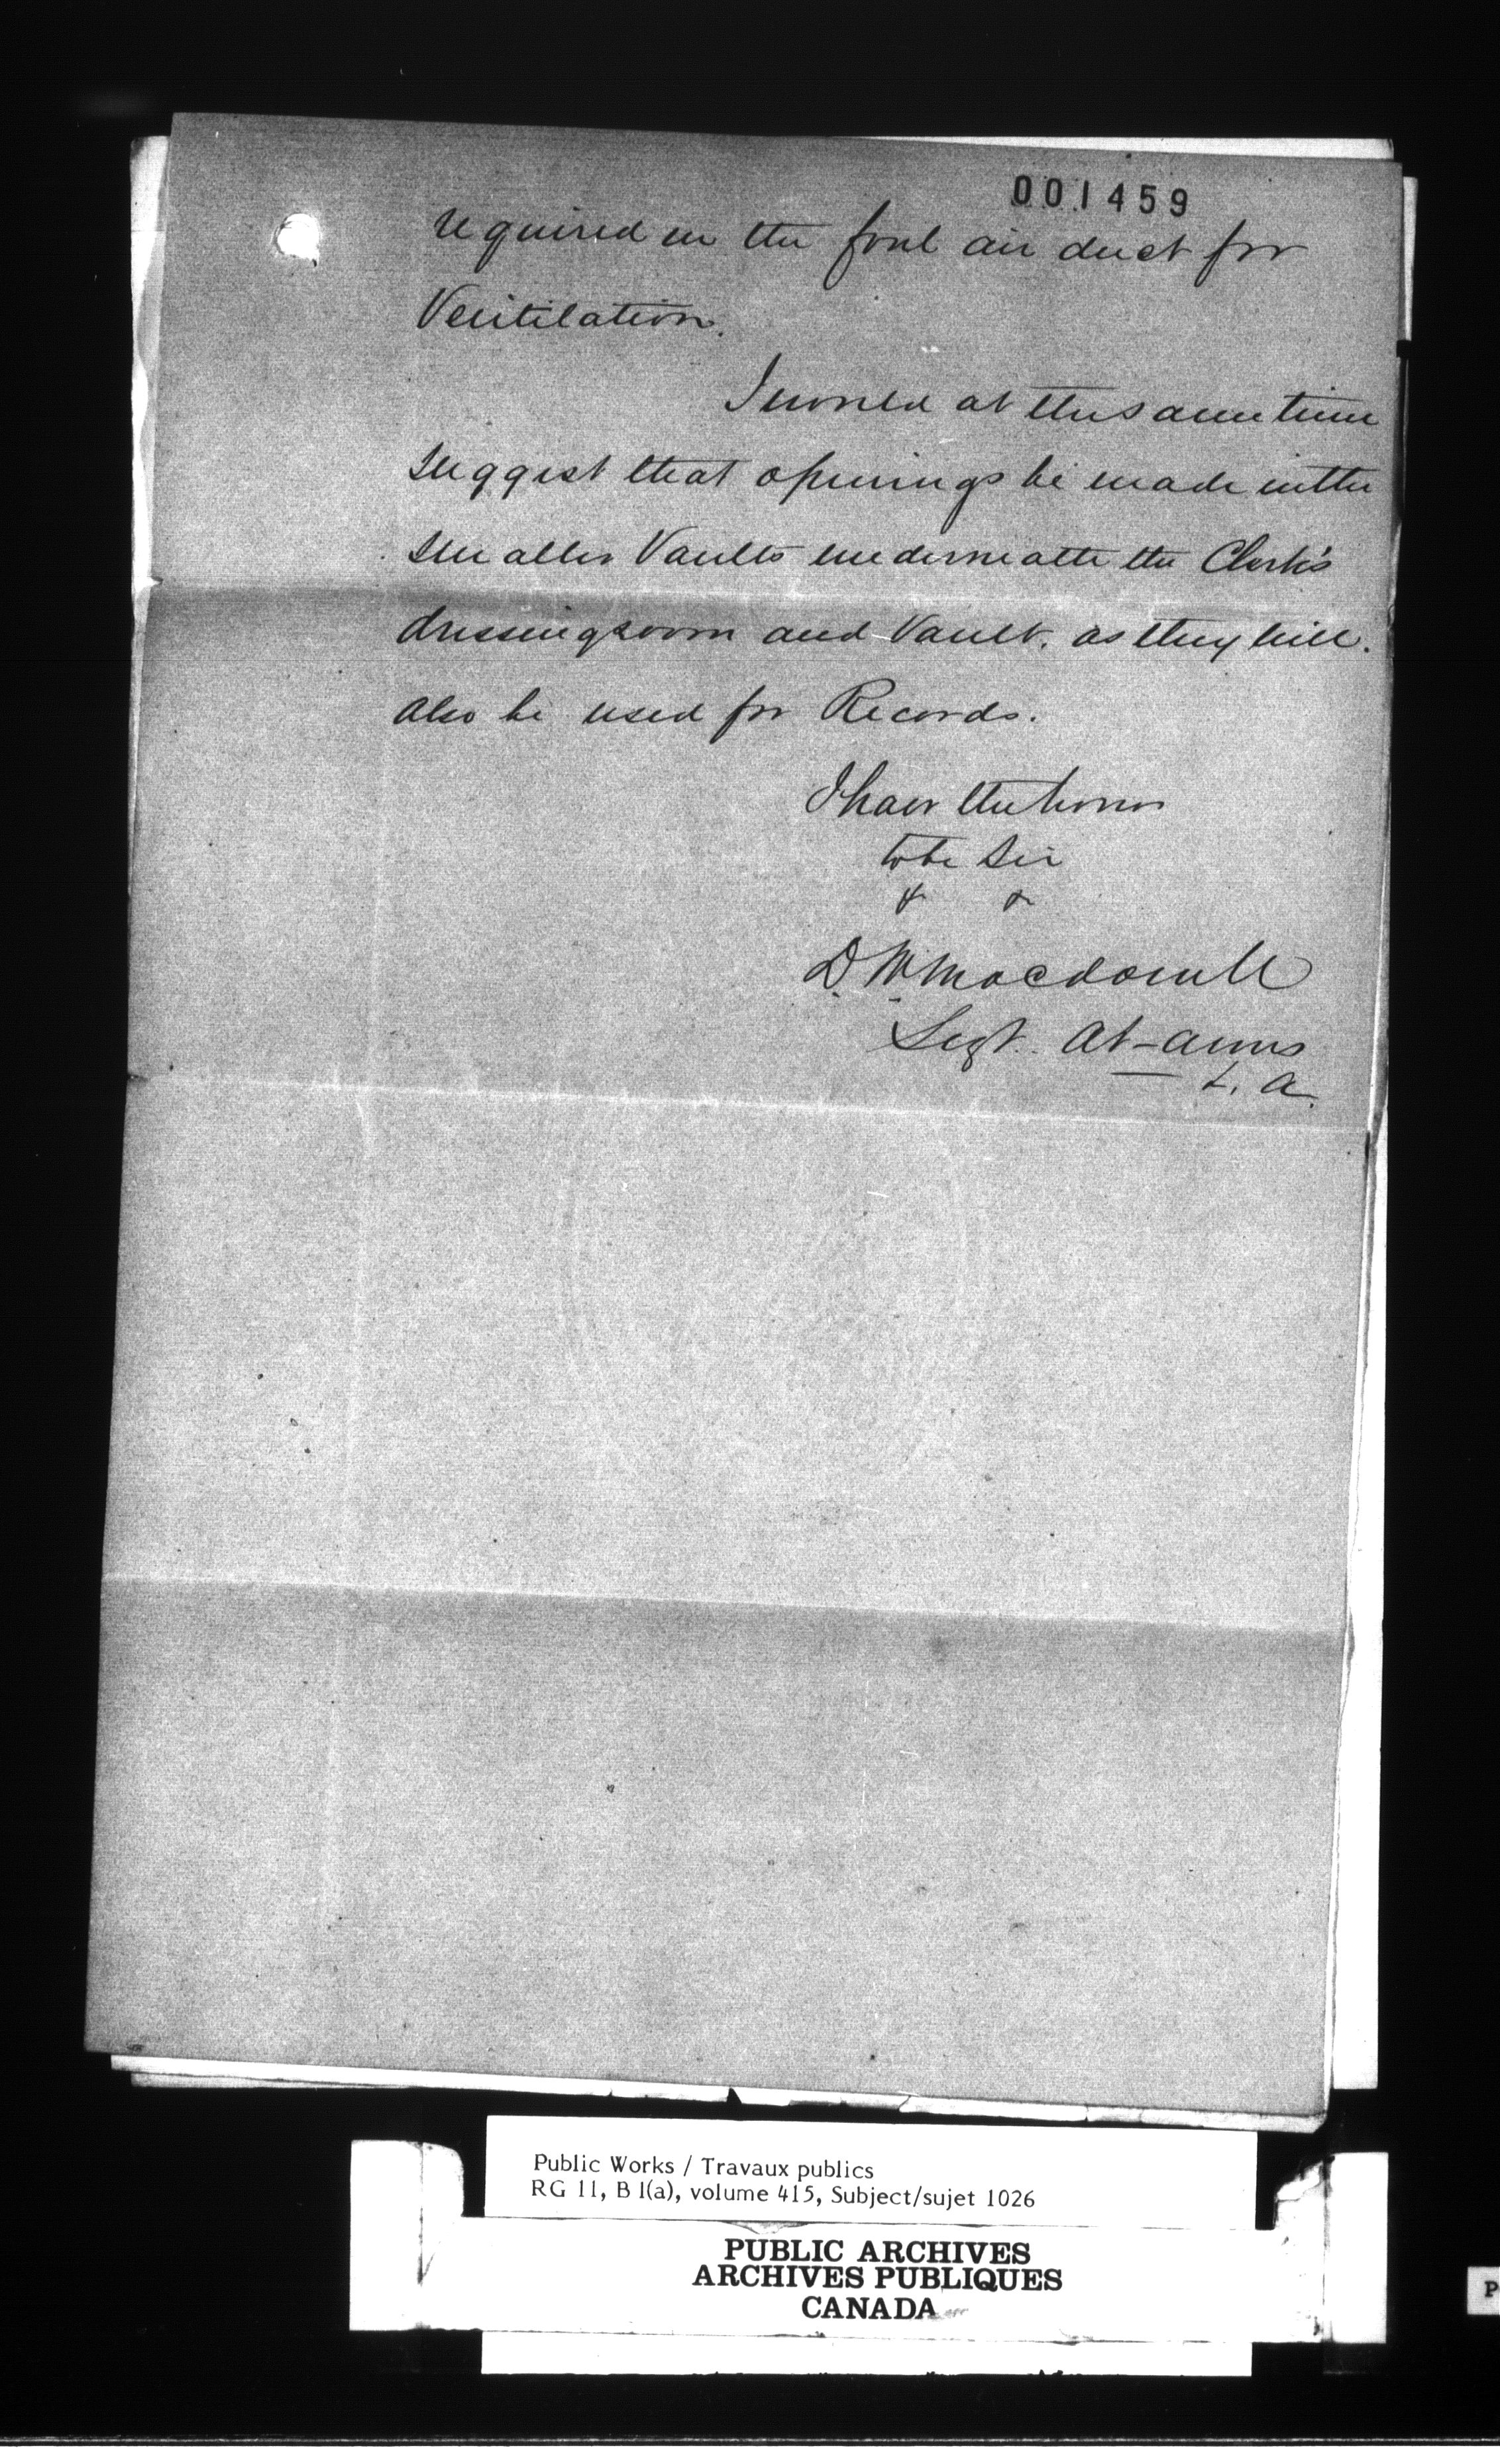 001459
required in the foul air duct for
Ventilation.
I would at the same time
suggest that openings be made in the
smaller Vaults underneath the Clerk's
dressing room and Vault. as they will.
also be used for Records.
I have the honor
to be Sir
& &
D. W. Macdonell
Sergt. At-arms
L. A.
Public Works / Travaux publics
RG 11, B 1(a), volume 415, Subject/sujet 1026
PUBLIC ARCHIVES
ARCHIVES PUBLIQUES
CANADA
P